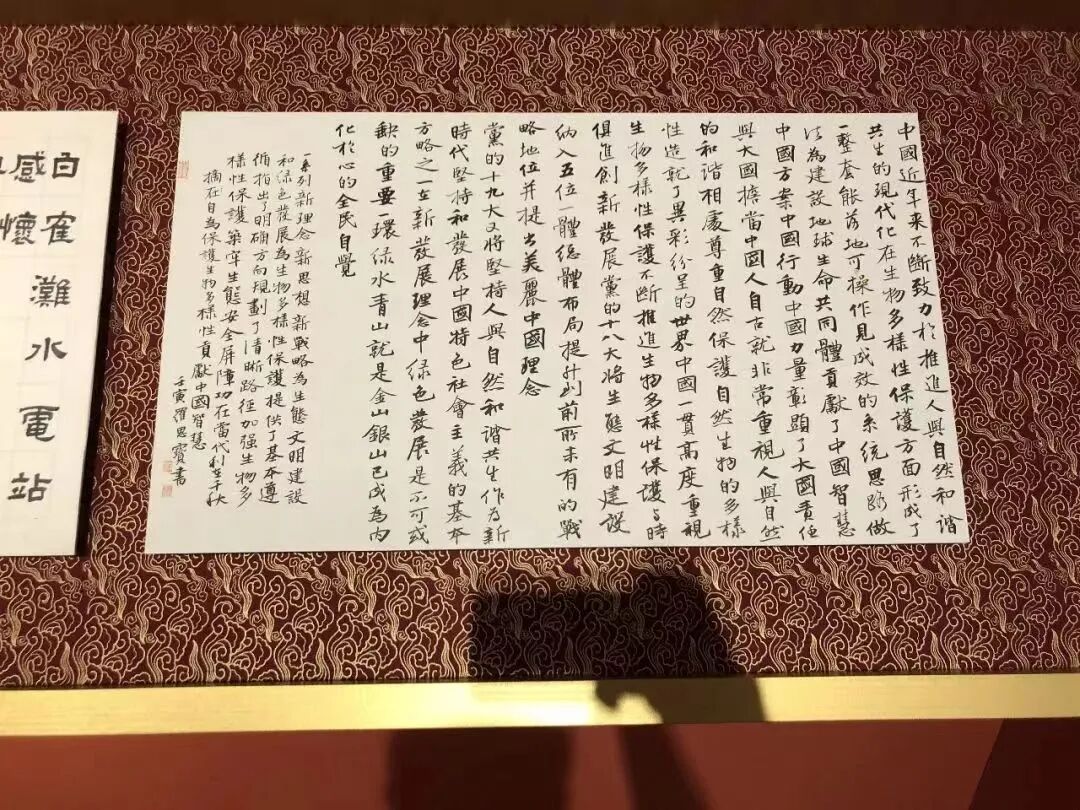 中國近年来不断致力於推進人與自然和谐
共生的现代化在生物多樣性保護方面形成了
一整套能落地可操作见成效的系统思路做
法為建設地球生命共同體貢獻了中國智慧
中國方案中國行動中國力量彰顯了大國责任
與大國擔當中國人自古就非常重視人與自然
的和谐相處尊重自然保護自然生物的多樣
性造就了異彩纷呈的世界中國一貫高度重視
生物多樣性保護不断推進生物多樣性保護与時
俱進創新發展黨的十八大將生態文明建設
納入五位一體總體布局提升到前所未有的戰
略地位并提出美麗中國理念
黨的十九大又將堅持人與自然和谐共生作為新
時代堅持和發展中國特色社會主義的基本
方略之一在新發展理念中绿色發展是不可或
缺的重要一環绿水青山就是金山銀山已成為内
化於心的全民自覺
一系列新理念新思想新戰略為生態文明建設
和绿色發展為生物多樣性保護提供了基本遵
循指出了明确方向規劃了清晰路徑加强生物多
樣性保護築牢生態安全屏障功在當代利在千秋
摘在自為保護生物多樣性貢獻中國智慧
壬寅羅思寶書
白雀灘水電站
感懷